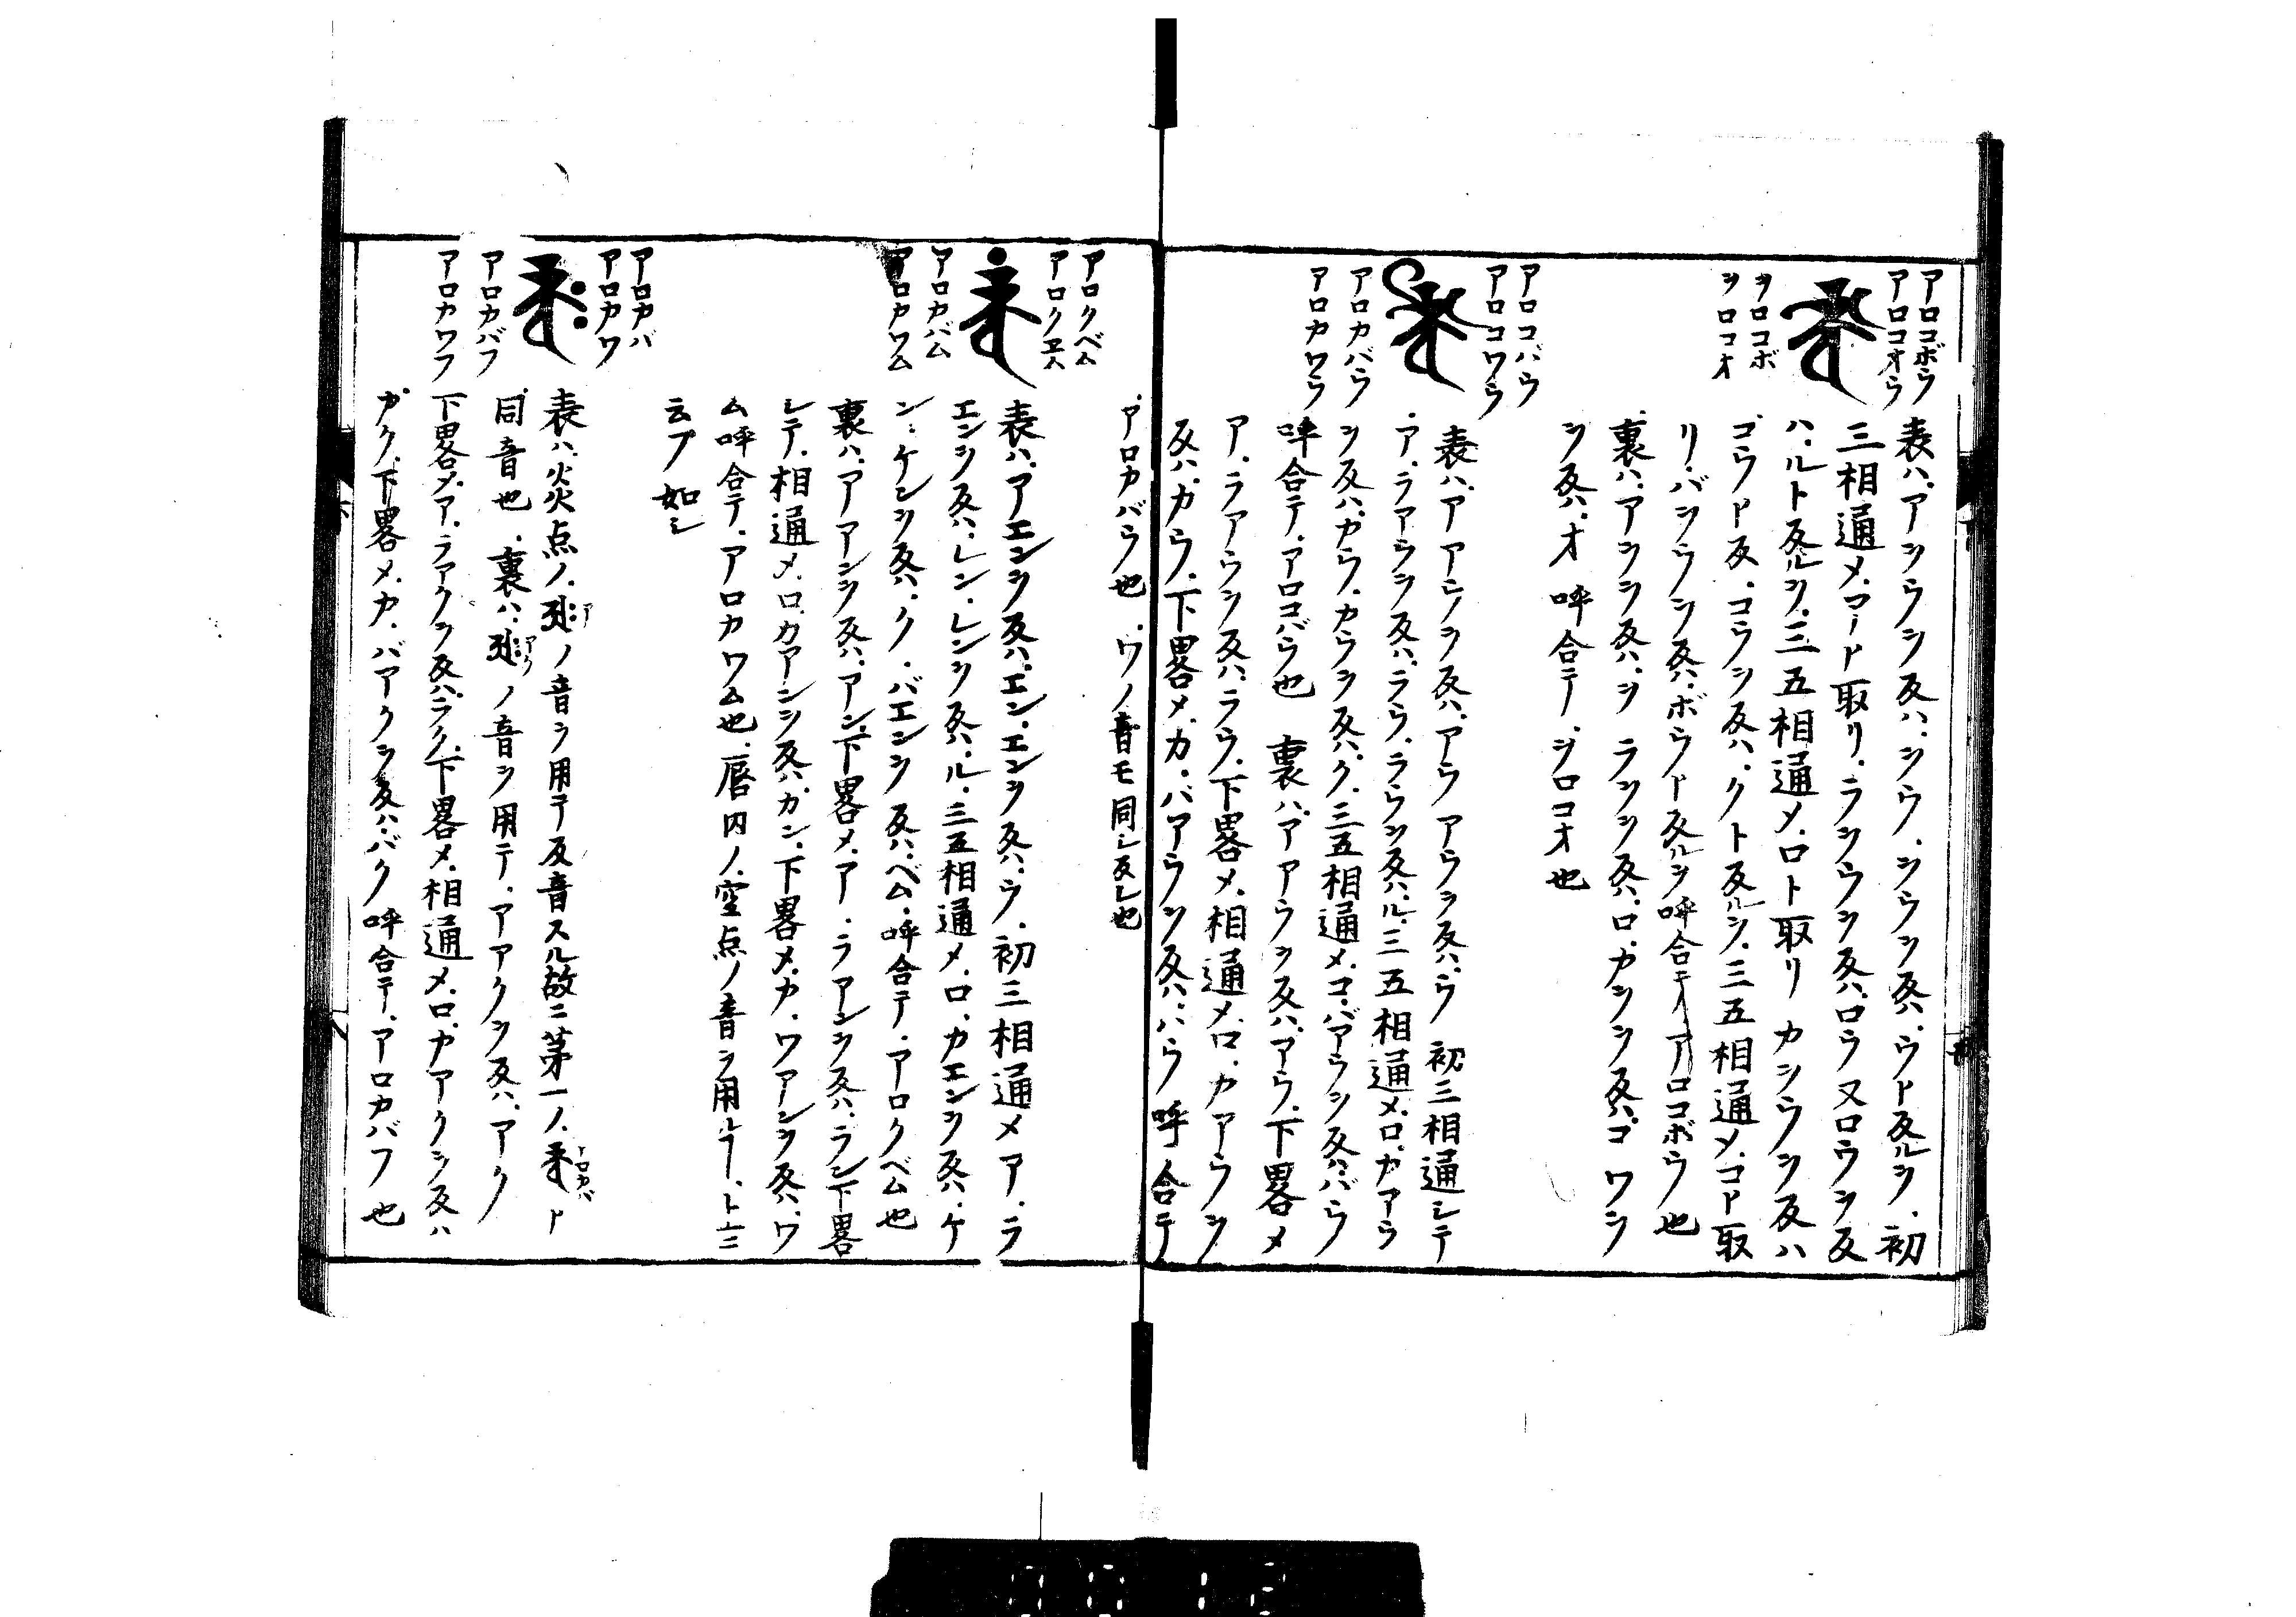 アロコボウ
アロコオウ
ヲロコボ
ヲロコオ
表ハ.アヲウヲ反ハ.ヲウ.ヲウヲ反ハ.ウト反ルヲ.初
三相通メ.アト取リ.ラヲウヲ反ハ.ロウ又ロウヲ反
ハ.ルト反ルヲ.三五相通メ.ロト取リ カヲウヲ反ハ
ゴウト反.コウヲ反ハ.クト反ルヲ.三五相通メ.コト取
リ.バヲウヲ反ハ.ボウト反ルヲ呼合テ アロコボウ也
裏ハ.アヲヲ反ハ.ヲ ラヲヲ反ハ.ロ.カヲヲ反ハ.コ ワヲ
ヲ反ハ.オ 呼合テ.ヲロコオ也
アロコバウ
アロコワウ
アロカバウ
アロカワウ
表ハ.アアウヲ反ハ.アウ アウヲ反ハ.ウ 初三相通シテ
ア.ラアウヲ反ハ.ラウ.ラウヲ反ハ.ル.三五相通メ.ロ.カアウ
ヲ反ハ.カウ.カウヲ反ハ.ク.三五相通メ.コ.バアウヲ反ハ.バウ
呼合テ.アロコバウ也 裏ハ.アアウヲ反ハ.アウ.下畧メ
ア.ラアウヲ反ハ.ラウ.下畧メ.相通メ.ロ.カアウヲ
反ハ.カウ.下畧メ.カ.バアウヲ反ハ.バウ 呼合テ
.アロカバウ也.ワノ音モ同シ反シ也
アロクベム
アロクエム
アロカバム
アロカワム
表ハ.アエンヲ反ハ.エン.エンヲ反ハ.ウ.初三相通メア.ラ
エンヲ反ハ.レン.レンヲ反ハ.ル.三五相通メ.ロ.カエンヲ反ハ.ケ
ン.ケンヲ反ハ.ク.バエンヲ反ハ.ベム.呼合テ.アロクベム也
裏ハ.アアンヲ反ハ.アン.下畧メ.ア.ラアンヲ反ハ.ラン下畧
シテ.相通メ.ロ.カアンヲ反ハ.カン.下畧メ.カ.ワアンヲ反ハ.ワ
ム呼合テ.アロカワム也.唇内ノ.空点ノ音ヲ用ルヿ.上ニ
云フ如シ
アロカバ
アロカワ
アロカバフ
アロカワフ
表ハ.炎点ノ.ノ音ヲ用テ反音スル故ニ第一ノ.アロカバト
同音也.裏ハ.アクノ音ヲ用テ.アアクヲ反ハ.アク
下畧メ.ア.ラアクヲ反ハ.ラク.下畧メ.相通メ.ロ.カアクヲ反ハ
カク.下畧メ.カ.バアクヲ反ハ.バク 呼合テ.アロカバフ也